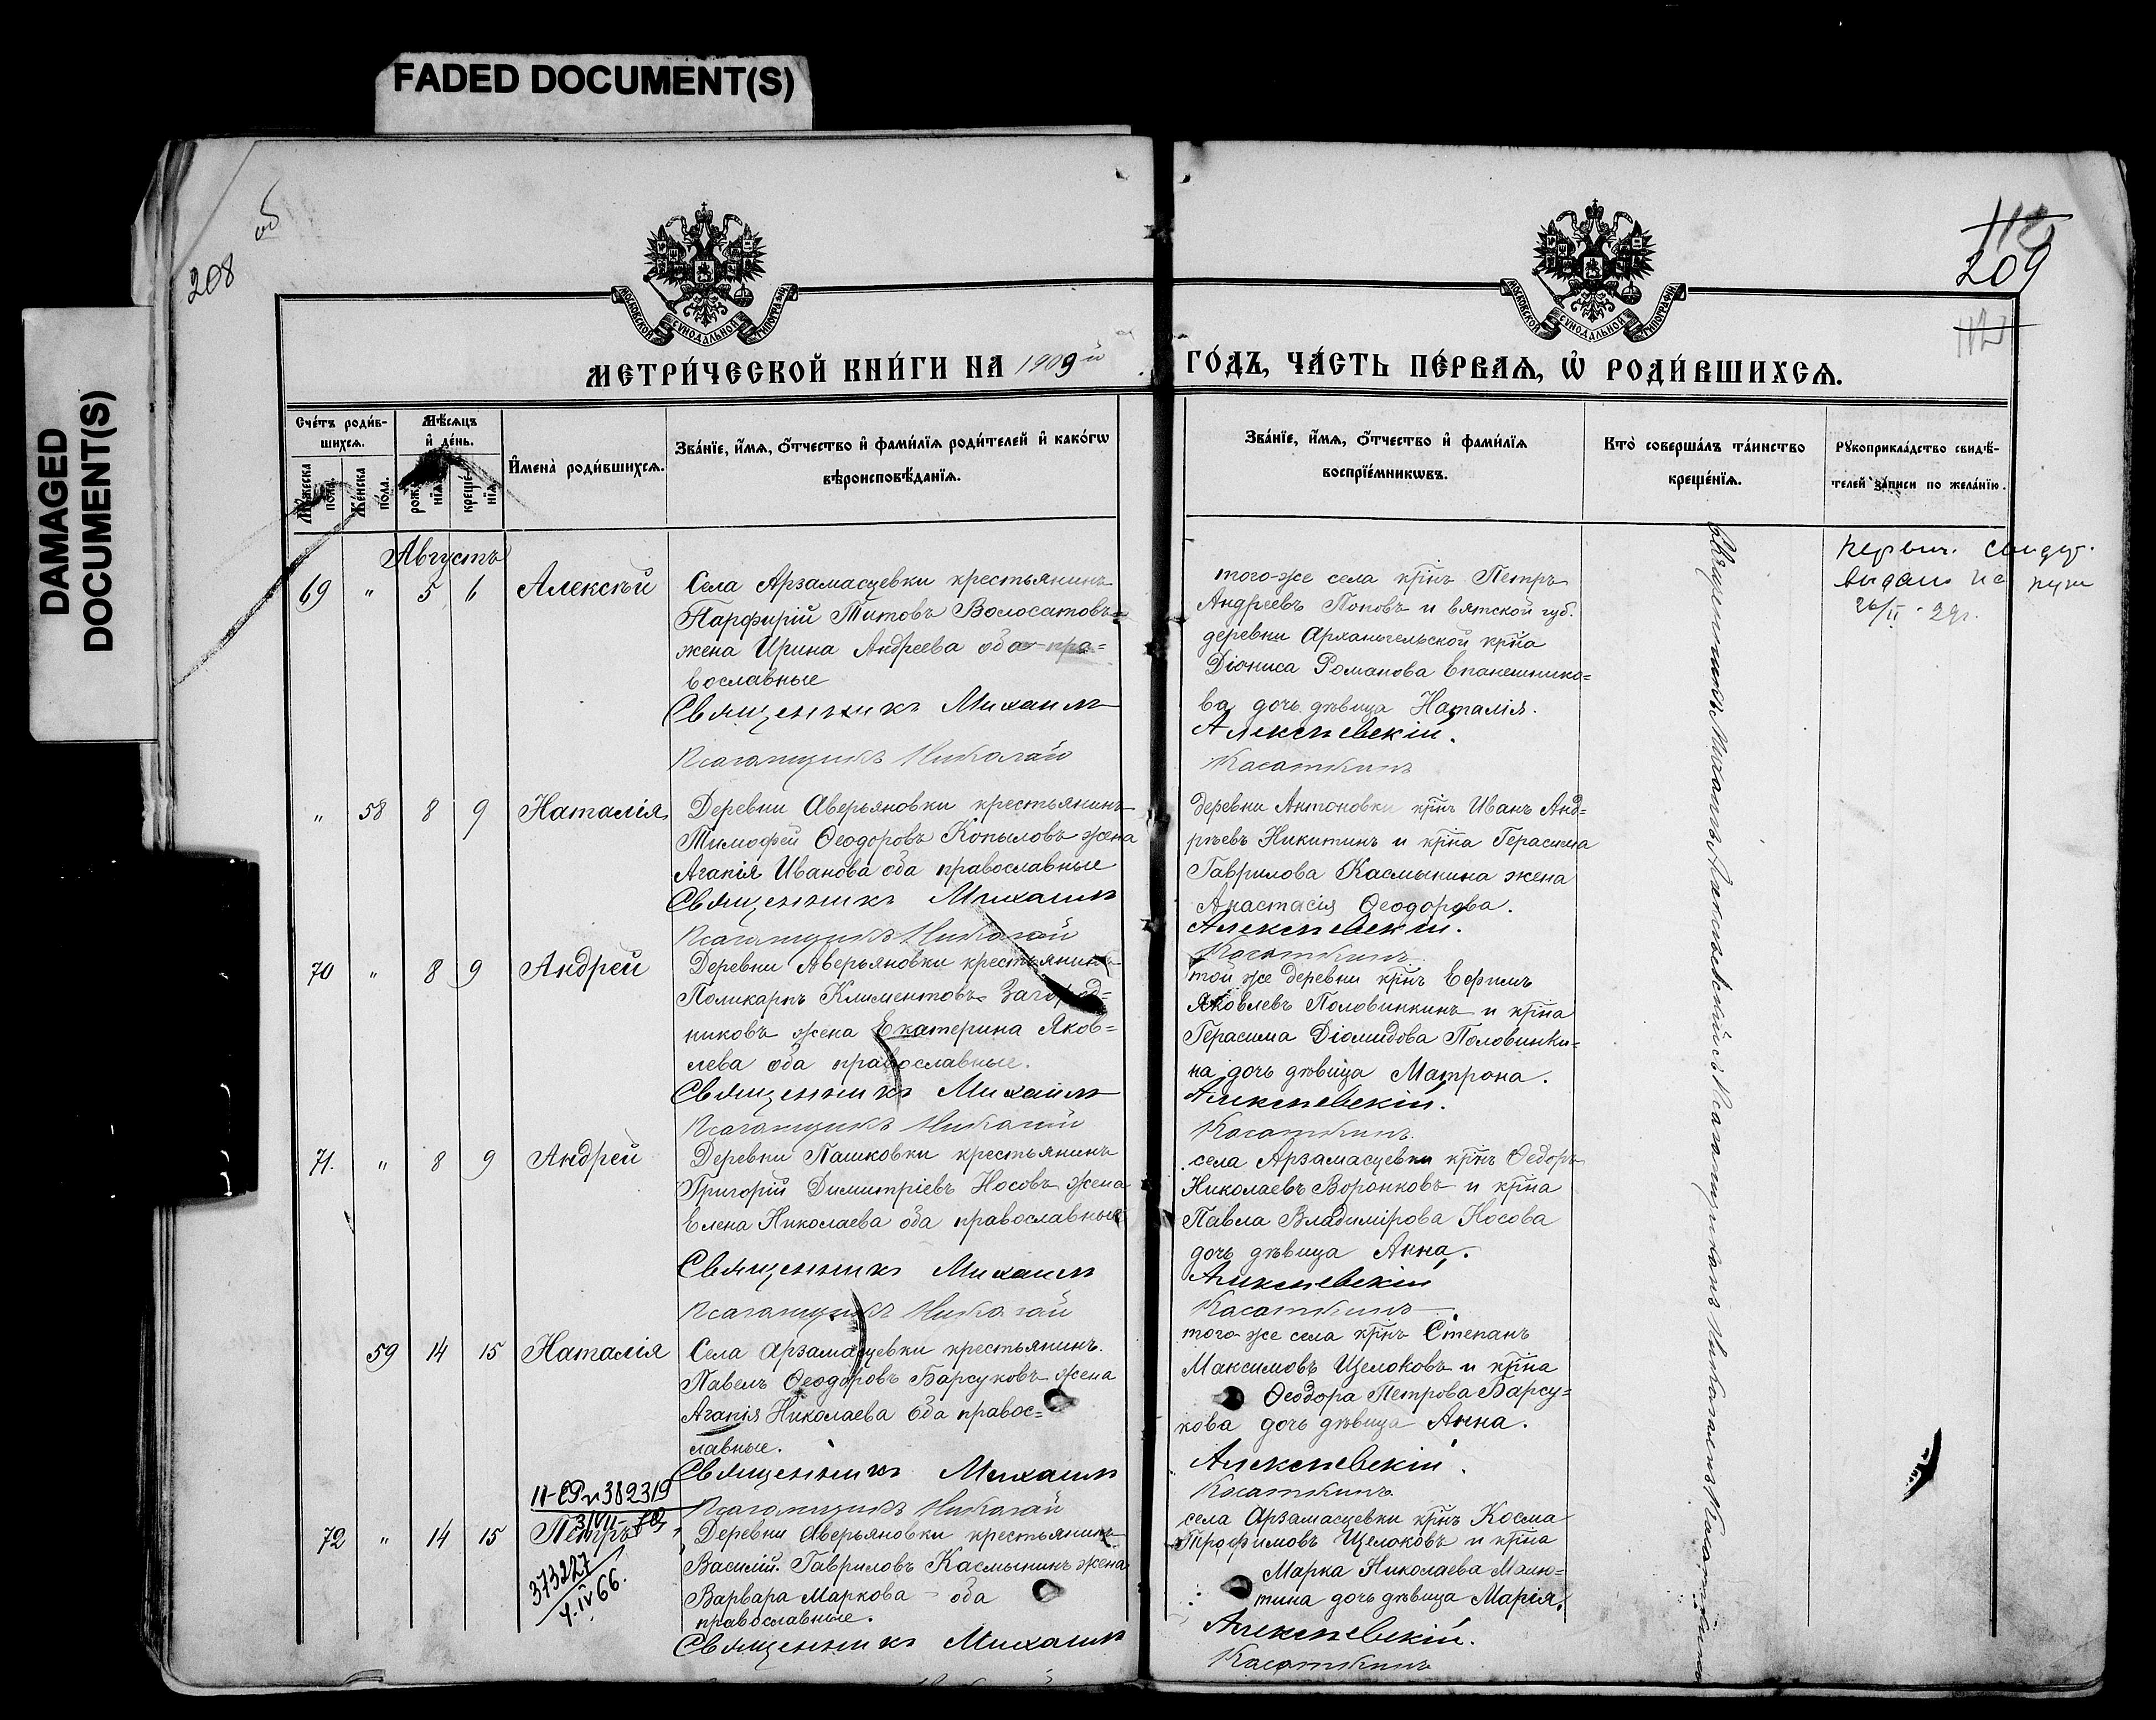 FADED DOCUMENT(S)
DAMAGED
DOCUMENT(S)
208
об
209
МОСКОВСКОЙ СѴНОДАЛЬНОЙ ТИПОГРАФІИ
МОСКОВСКОЙ СѴНОДАЛЬНОЙ ТИПОГРАФІИ
МЕТРИ́ЧЕСКОЙ КНИ́ГИ НА 1909й ГО́ДЪ, ЧА́СТЬ ПЕ́РВАѦ, Ѡ҆ РОДИ́ВШИХСѦ.
Сче́тъ роди́в-
шихсѧ.
Мꙋ́жеска
пола.
Же́нска
по́ла.
Мѣ́сѧцъ
и҆ де́нь.
рожде-
нїѧ.
креще́-
нїѧ.
И҆мена̀ роди́вшихсѧ.
Зва́нїе, и҆́мѧ, ѻ҆́тчество и҆ фами́лїѧ роди́телей и҆ како́гѡ
вѣроисповѣ́данїѧ.
Зва́нїе, и҆́мѧ, ѻ҆́тчество и҆ фами́лїѧ
воспрїе́мникѡвъ.
Кто̀ соверша́лъ та́инство
креще́нїѧ.
Рꙋкоприкла́дство свидѣ́-
телей за́писи по жела́нїю.
Августъ
69 " 5 6 Алексѣй
Села Арзамасцевки крестьянинъ
Парфирій Титовъ Волосатовъ=
жена Ирина Андреева оба пра=
вославные
Священникъ Михаилъ
Псаломщикъ Николай
того-же села кр̃нъ Петръ
Андреевъ Поповъ и вятской губ.
деревни Архангельской кр̃на
Діониса Романова Епанешнико=
ва дочь дѣвица Наталія.
Алексѣевскій.
Касаткинъ
26/II - 29г.
" 58 8 9 Наталія
Деревни Аверьяновки крестьянинъ
Тимофей Ѳеодоровъ Копыловъ жена
Агапія Иванова оба православные
Священникъ Михаилъ
Псаломщикъ Николай
деревни Антоновки кр̃нъ Иванъ Анд=
рѣевъ Никитинъ и кр̃на Герасима
Гаврилова Касмынина жена
Анастасія Ѳеодорова.
Алексѣевскій.
Касаткинъ
70 " 8 9 Андрей
Деревни Аверьяновки крестьянинъ
Поликарпъ Климентовъ Загород=
никовъ жена Екатерина Яков=
лева оба православные.
Священникъ Михаилъ
Псаломщикъ Николай
той же деревни кр̃нъ Ефимъ
Яковлевъ Половинкинъ и кр̃на
Герасима Діомидова Половинки=
на дочь дѣвица Матрона.
Алексѣевскій.
Касаткинъ.
71. " 8 9 Андрей
Деревни Пашковки крестьянинъ
Григорій Димитріевъ Носовъ жена
Елена Николаева оба православные
Священникъ Михаилъ
Псаломщикъ Николай
села Арзамасцевки кр̃нъ Ѳедоръ
Николаевъ Воронковъ и кр̃на
Павла Владимірова Носова
дочь дѣвица Анна.
Алексѣевскій
Касаткинъ
59 14 15 Наталія
Села Арзамасцевки крестьянинъ.
Павелъ Ѳеодоровъ Барсуковъ жена
Агапія Николаева оба правос=
лавные.
Священникъ Михаилъ
Псаломщикъ Николай
того-же села кр̃нъ Степанъ
Максимовъ Щелоковъ и кр̃на
Ѳеодора Петрова Барсу=
кова дочь дѣвица Анна.
Алексѣевскій.
Касаткинъ
72 " 14 15 Петръ
373227
4.IV 66.
Деревни Аверьяновки крестьянинъ
Василій Гавриловъ Касмынинъ жена
Варвара Маркова - оба
православные.
Священникъ Михаилъ
села Арзамасцевки кр̃нъ Косма
Трофимовъ Щелоковъ и кр̃на
Марка Николаева Малю=
тина дочь дѣвица Марія.
Алексѣевскій.
Касаткинъ
Священникъ Михаилъ Алексѣевскій съ Псаломщикомъ Николаемъ Касаткинымъ